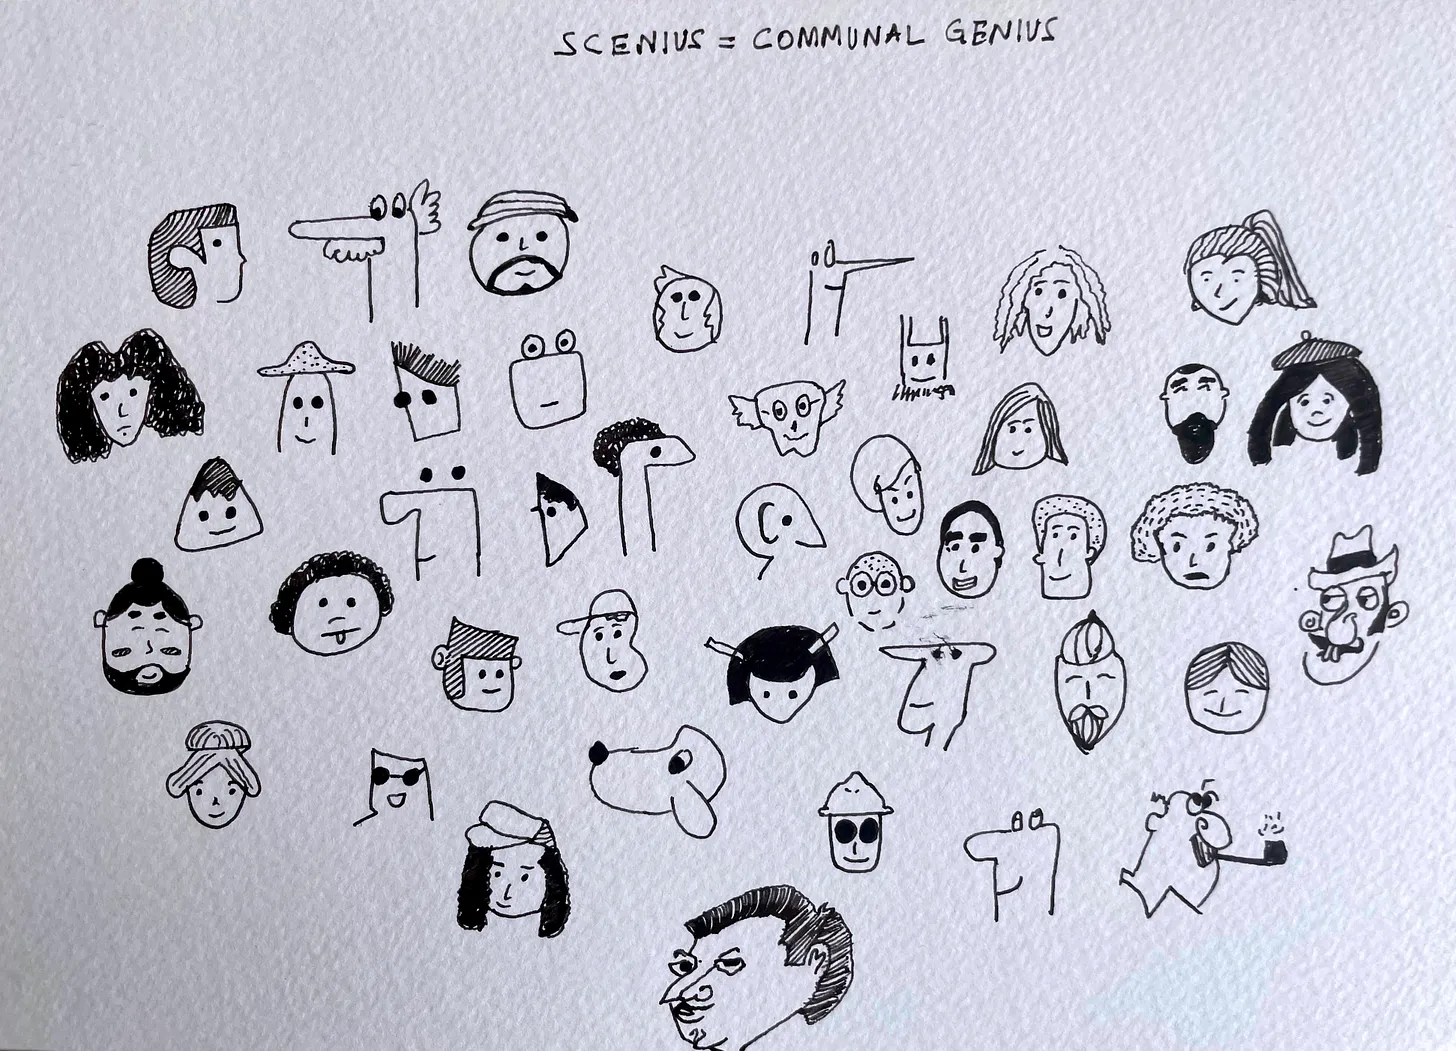 SCENIUS = COMMUNAL GENIUS